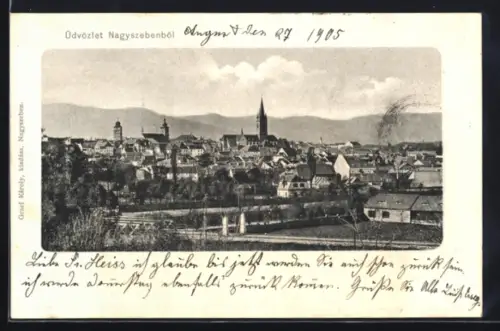 Üdvözlet Nagyszebenből
August den 27 1905
Graef Károly, kiadása, Nagyszeben.
Liebe Fr. Heiss ich glaube bis jetzt werden Sie auch schon zurück sein
ich werde Donerstag ebenfalls zurück komen. Grüße Sie Alle